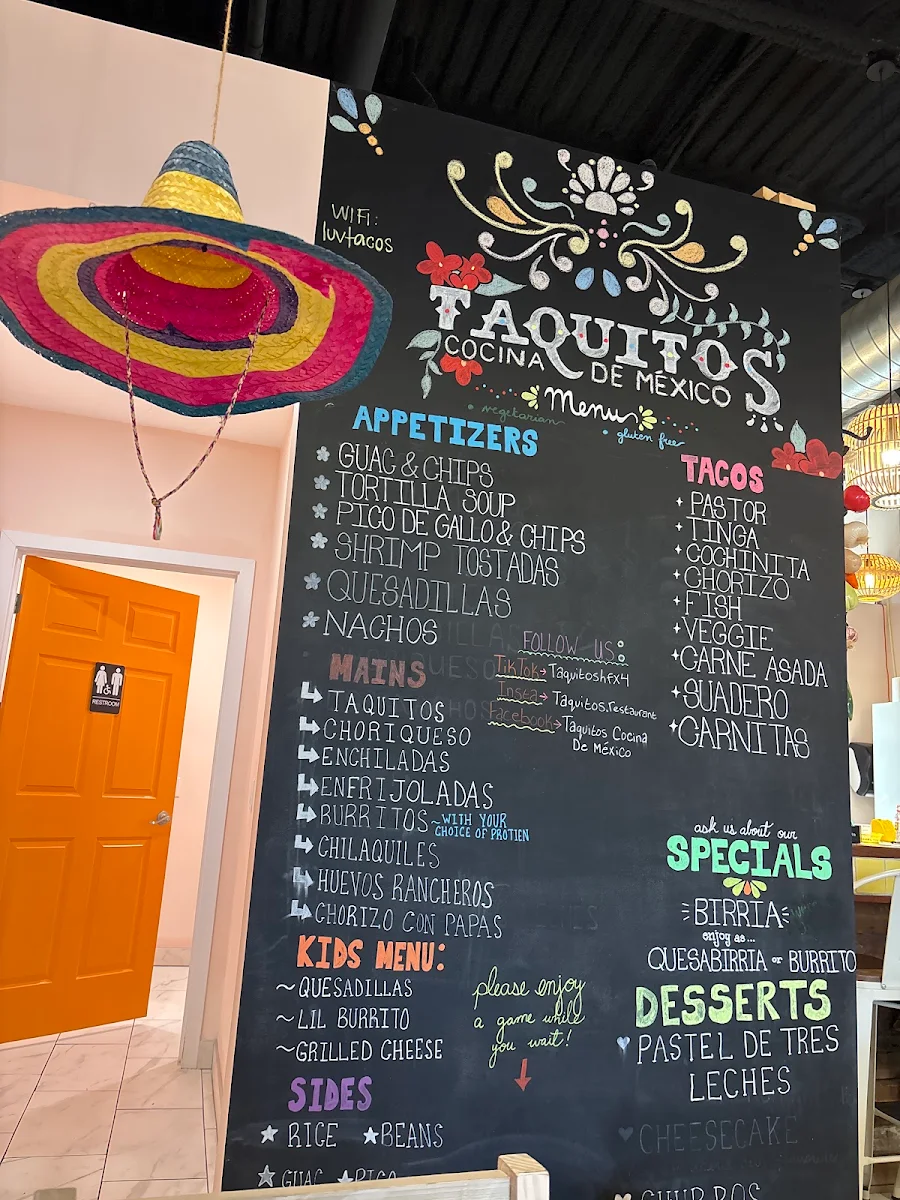 WIFI:
luvtacos
TAQUITOS
COCINA DE MÉXICO
Menu
vegetarian
gluten free
APPETIZERS
GUAC & CHIPS
TORTILLA SOUP
PICO DE GALLO & CHIPS
SHRIMP TOSTADAS
QUESADILLAS
NACHOS
FOLLOW US:
TikTok → Taquitoshfx4
Insta → Taquitos.restaurant
Facebook → Taquitos Cocina
De México
MAINS
TAQUITOS
CHORIQUESO
ENCHILADAS
ENFRIJOLADAS
BURRITOS ~WITH YOUR
CHOICE OF PROTIEN
CHILAQUILES
HUEVOS RANCHEROS
CHORIZO CON PAPAS
KIDS MENU:
~QUESADILLAS
~LIL BURRITO
~GRILLED CHEESE
please enjoy
a game while
you wait!
SIDES
RICE BEANS
GUAC PICO
TACOS
PASTOR
TINGA
COCHINITA
CHORIZO
FISH
VEGGIE
CARNE ASADA
SUADERO
CARNITAS
ask us about our
SPECIALS
BIRRIA
enjoy as...
QUESABIRRIA or BURRITO
DESSERTS
PASTEL DE TRES
LECHES
CHEESECAKE
CHURROS
RESTROOM